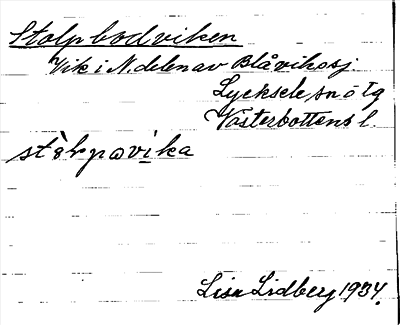 Stolpbodviken
Vik i N. delen av Blåvikssj.
Lycksele, sn o tg
Västerbottens l.
Lisa Lidberg 1934.